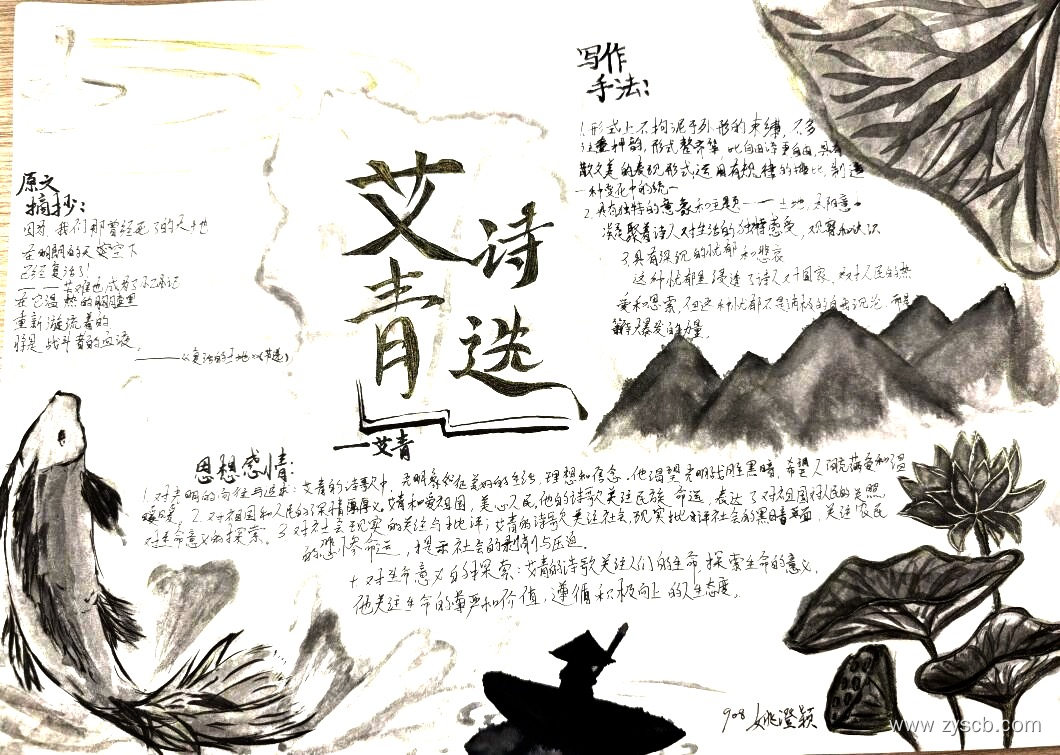 艾青诗选
—艾青
原文
摘抄：
因为，我们那曾经死了的大地
在明朗的天空下
已经复活了！
——苦难也成为了记忆
在它温热的胸膛里
重新漩流着的
将是战斗者的血液。
——《复活的土地》（节选）
写作
手法：
1.形式上不拘泥于外形的束缚，不多
注重押韵，形式整齐等，比自由诗更自由，具有
散文美的表现形式，运用有规律的排比，制造
一种变化中的统一
2.具有独特的意象和主题——土地，太阳意
凝聚着诗人对生活的独特感受，观察和认识
3.具有深沉的忧郁和悲哀
这种忧郁里浸透了诗人对国家，对人民的热
爱和思索，但这种忧郁不是消极的自我沉沦，而是
解 爆发的力量。
思想感情：
1.对光明的向往与追求：艾青的诗歌中，光明象征美好的生活，理想和信念。他渴望光明战胜黑暗，希望人间充满爱和温
暖。2.对祖国和人民的深情厚意。艾青和爱祖国，关心人民，他的诗歌关注民族命运，表达了对祖国对人民的关照
对生命意义的探索。3.对社会现实的关注与批评：艾青的诗歌关注社会现实批评社会的黑暗面，关注农民
的悲惨命运，揭示社会的剥削与压迫。
4.对生命意义的探索：艾青的诗歌关注人们的生命，探索生命的意义，
他关注生命的尊严和价值，遵循积极向上的人生态度。
908 姚澄颖
www.zyscb.com